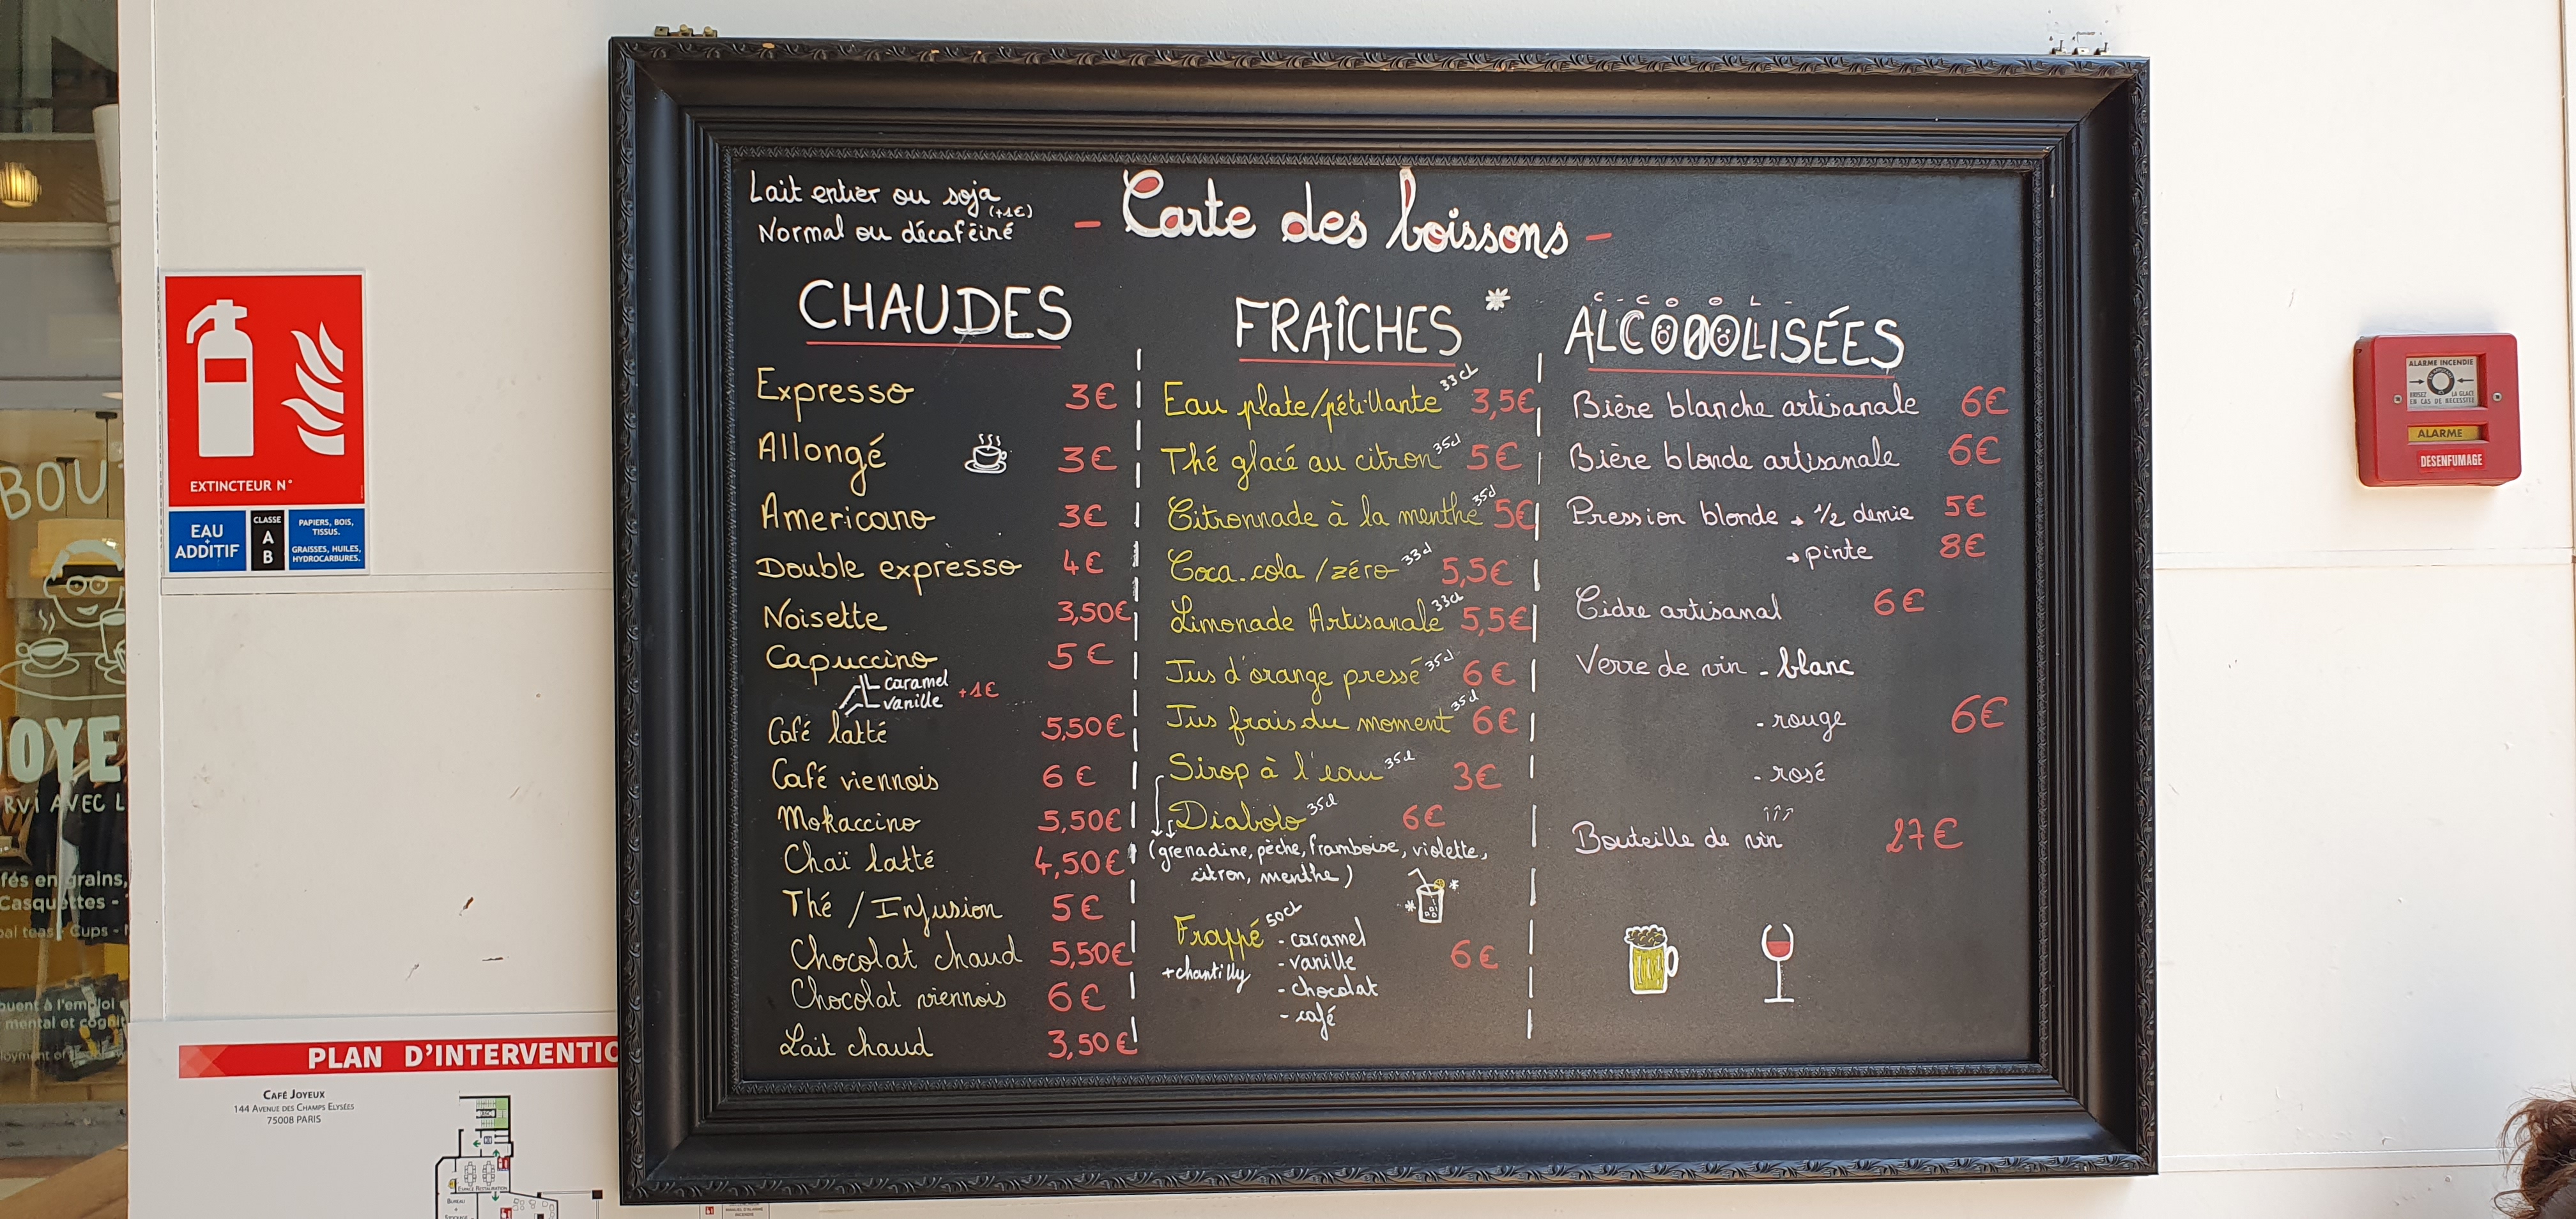 Lait entier ou soja (+1€)
Normal ou décaféiné
- Carte des boissons -
CHAUDES
Expresso 3€
Allongé 3€
Americano 3€
Double expresso 4€
Noisette 3,50€
Capuccino 5€
caramel
vanille +1€
Café latté 5,50€
Café viennois 6€
Mokaccino 5,50€
Chaï latté 4,50€
Thé / Infusion 5€
Chocolat chaud 5,50€
Chocolat viennois 6€
Lait chaud 3,50€
FRAÎCHES *
Eau plate/pétillante 33cl 3,5€
Thé glacé au citron 35cl 5€
Citronnade à la menthe 35cl 5€
Coca-cola / zéro 33cl 5,5€
Limonade Artisanale 33cl 5,5€
Jus d'orange pressé 35cl 6€
Jus frais du moment 35cl 6€
Sirop à l'eau 35cl 3€
Diabolo 35cl 6€
(grenadine, pêche, framboise, violette,
citron, menthe)
Frappé 50cl - caramel
+chantilly - vanille 6€
- chocolat
- café
C-COOL-
ALCOOLISÉES
Bière blanche artisanale 6€
Bière blonde artisanale 6€
Pression blonde → 1/2 demie 5€
→ pinte 8€
Cidre artisanal 6€
Verre de vin - blanc
- rouge 6€
- rosé
Bouteille de vin 27€
EXTINCTEUR N°
EAU
+
ADDITIF
CLASSE
A
B
PAPIERS, BOIS,
TISSUS.
GRAISSES, HUILES,
HYDROCARBURES.
BOU
JOYE
RVI AVEC L
fés en grains,
Casquettes -
bal teas - Cups -
buent à l'emploi
mental et cognit
PLAN D'INTERVENTIO
CAFÉ JOYEUX
144 AVENUE DES CHAMPS ELYSÉES
75008 PARIS
ESPACE RESTAURATION
BUREAU
+
ALARME INCENDIE
BRISEZ LA GLACE
EN CAS DE NECESSITE
ALARME
DESENFUMAGE